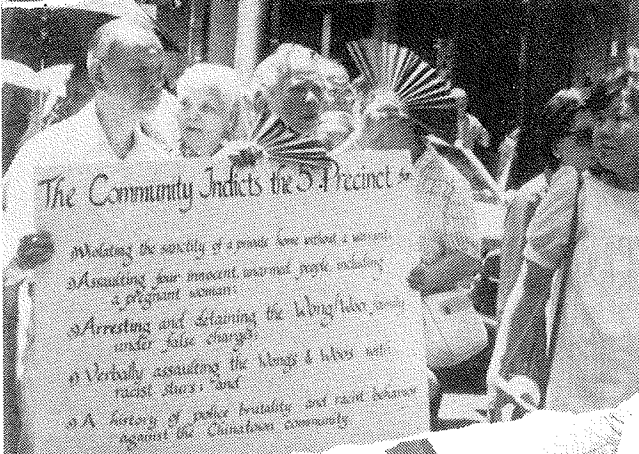 The Community Indicts the 5th Precinct for
1) Violating the sanctity of a private home without a warrant;
2) Assaulting four innocent, unarmed people, including
a pregnant woman;
3) Arresting and detaining the Wong/Woo family
under false charges;
4) Verbally assaulting the Wongs & Woos with
racist slurs; and
5) A history of police brutality and racist behavior
against the Chinatown community.